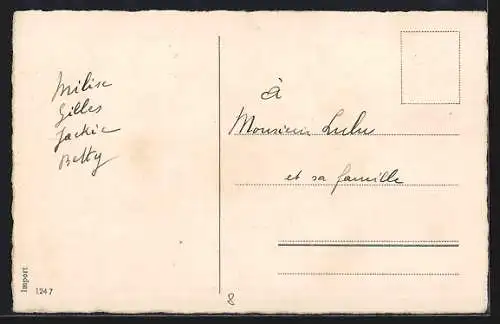 Milise
Gilles
Jackie
Betty
à
Monsieur Lulu
et sa famille
Import
1247
8